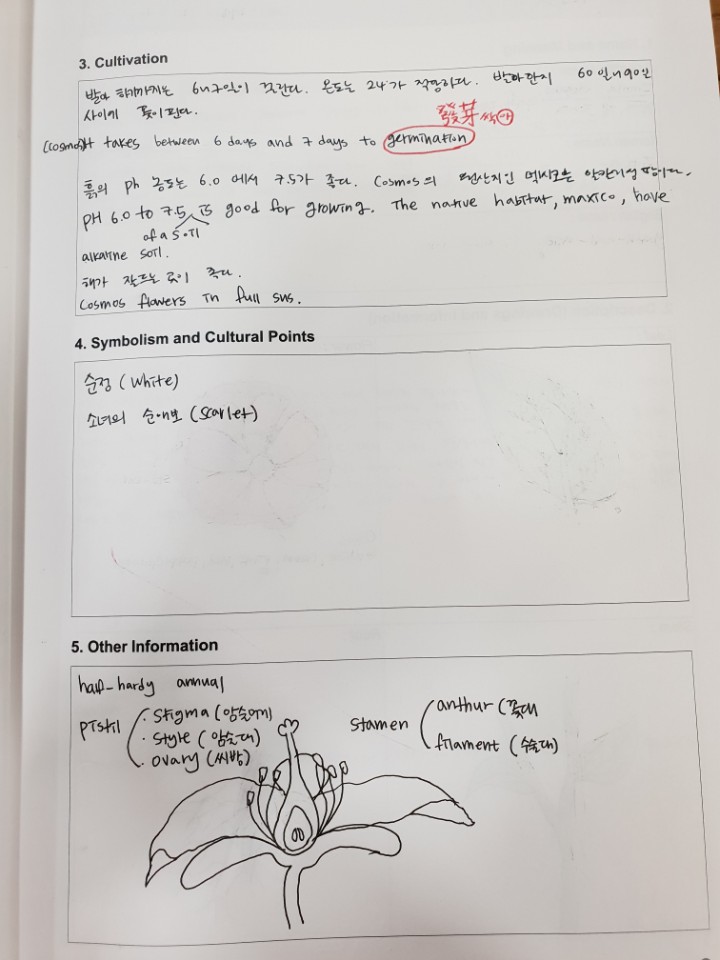 3. Cultivation
발아 하기까지는 6~7일이 걸린다. 온도는 24가 적당하다. 발아한지 60일~90일
사이에 꽃이 핀다.
發芽
(cosmos)It takes between 6 days and 7 days to germination
흙의 ph 농도는 6.0 에서 7.5가 좋다. Cosmos의 원산지인 멕시코는
PH 6.0 to 7.5 is good for growing. The native habitat, maxico, have
of a soil
alkaline soil.
해가 잘드는 곳이 좋다.
Cosmos flowers in full sus.
4. Symbolism and Cultural Points
순정 (White)
소녀의 순애보 (Scarlet)
5. Other Information
half-hardy annual
Pistil
· Stigma (암술머리)
· Style (암술대)
· ovary (씨방)
Stamen
anthur (꽃대
filament (수술대)